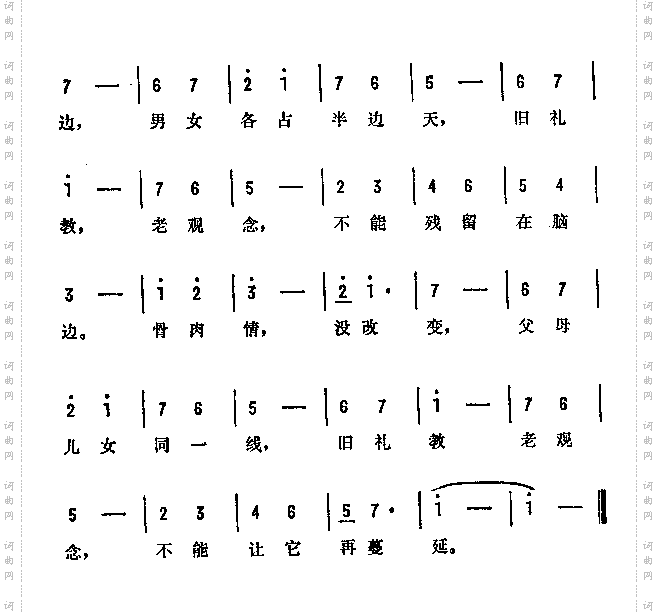 7 — | 6 7 | 2̇ 1̇ | 7 6 | 5 — | 6 7 |
边, 男 女 各 占 半 边 天, 旧 礼
1̇ — | 7 6 | 5 — | 2 3 | 4 6 | 5 4 |
教, 老 观 念, 不 能 残 留 在 脑
3 — | 1̇ 2̇ | 3̇ — | 2̇ 1̇· | 7 — | 6 7 |
边。 骨 肉 情, 没 改 变, 父 母
2̇ 1̇ | 7 6 | 5 — | 6 7 | 1̇ — | 7 6 |
儿 女 同 一 线, 旧 礼 教 老 观
5 — | 2 3 | 4 6 | 5 7· | 1̇ — | 1̇ — ‖
念, 不 能 让 它 再 蔓 延。
词曲网 词曲网 词曲网 词曲网 词曲网
词曲网 词曲网 词曲网 词曲网 词曲网